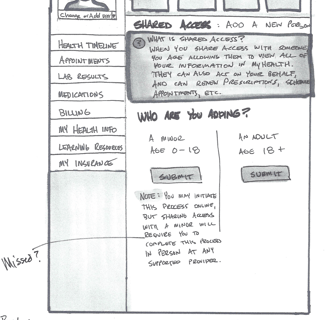 Change or Add
SHARED ACCESS: ADD A NEW PERSON
WHAT IS SHARED ACCESS?
WHEN YOU SHARE ACCESS WITH SOMEONE,
YOU ARE ALLOWING THEM TO VIEW ALL OF
YOUR INFORMATION IN MYHEALTH.
THEY CAN ALSO ACT ON YOUR BEHALF,
AND CAN RENEW PRESCRIPTIONS, SCHEDULE
APPOINTMENTS, ETC.
HEALTH TIMELINE
APPOINTMENTS
LAB RESULTS
MEDICATIONS
BILLING
MY HEALTH INFO
LEARNING RESOURCES
MY INSURANCE
WHO ARE YOU ADDING?
A MINOR
AGE 0-18
SUBMIT
AN ADULT
AGE 18+
SUBMIT
NOTE: YOU MAY INITIATE
THIS PROCESS ONLINE,
BUT SHARING ACCESS
WITH A MINOR WILL
REQUIRE YOU TO
COMPLETE THIS PROCESS
IN PERSON AT ANY
SUPPORTING PROVIDER.
Missed?